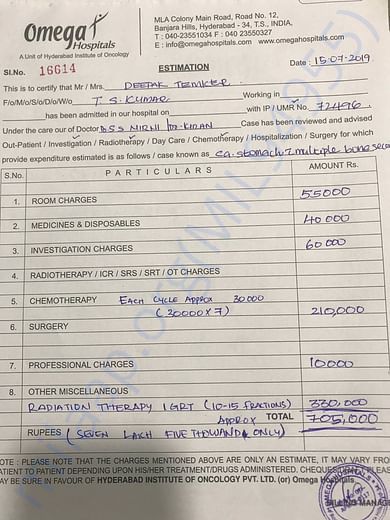 Omega
Hospitals
A Unit of Hyderabad Institute of Oncology
MLA Colony Main Road, Road No. 12,
Banjara Hills, Hyderabad - 34, T.S., INDIA,
T : 040-23551034 F : 040 23550327
E : info@omegahospitals.com www.omegahospitals.com
Sl.No. 16614
ESTIMATION
Date : 15-07-2019
This is to certify that Mr / Mrs. DEEPAK
F/o/M/o/S/o/D/o/W/o T S. KUMAR Working in
has been admitted in our hospital on with IP / UMR No. 72496
Under the care our of Doctor Case has been reviewed and advised
Out-Patient / Investigation / Radiotherapy / Day Care / Chemotherapy / Hospitalization / Surgery for which
provide expenditure estimated is as follows / case known as ca. stomach multiple bone
S.No. PARTICULARS AMOUNT Rs.
1. ROOM CHARGES 55000
2. MEDICINES & DISPOSABLES 40000
3. INVESTIGATION CHARGES 60000
4. RADIOTHERAPY / ICR / SRS / SRT / OT CHARGES
5. CHEMOTHERAPY EACH CYCLE APPROX 30000
(30000 X 7) 210,000
6. SURGERY
7. PROFESSIONAL CHARGES 10000
8. OTHER MISCELLANEOUS
RADIATION THERAPY IGRT (10-15 FRACTIONS) 330,000
APPROX TOTAL 705,000
RUPEES (SEVEN LAKH FIVE THOUSAND ONLY)
OTE : PLEASE NOTE THAT THE CHARGES MENTIONED ABOVE ARE ONLY AN ESTIMATE, IT MAY VARY FRO
ATIENT TO PATIENT DEPENDING UPON HIS/HER TREATMENT/DRUGS ADMINISTERED. CHEQUE PLEAS
AY BE SURE IN FAVOUR OF HYDERABAD INSTITUTE OF ONCOLOGY PVT. LTD. (or) Omega Hospitals
MANAG